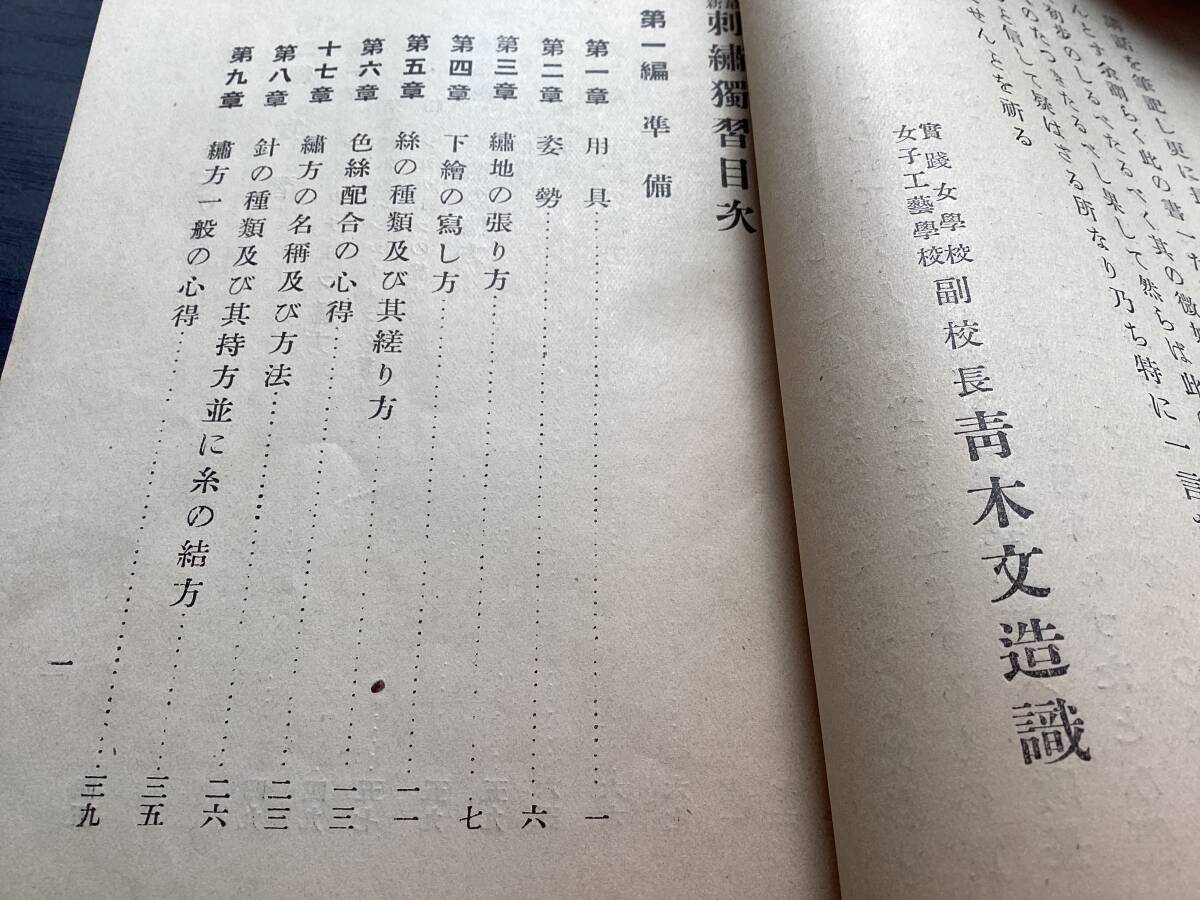 講話を筆記し更に
んとす余
初步のしるべたるべく其の
のたつきたるべし果して然らは此
と信して疑はさる所なり乃ち特に一言
せんとを祈る
實踐女學校
女子工藝學校 副校長 靑木文造識
刺繡獨習目次
第一編 準備
第一章 用具……一
第二章 姿勢……六
第三章 繡地の張り方……七
第四章 下繪の寫し方……一一
第五章 絲の種類及び其縒り方……一三
第六章 色絲配合の心得……二三
十七章 繡方の名稱及び方法……二六
第八章 針の種類及び其持方並に糸の結方……三五
第九章 繡方一般の心得……三九
一